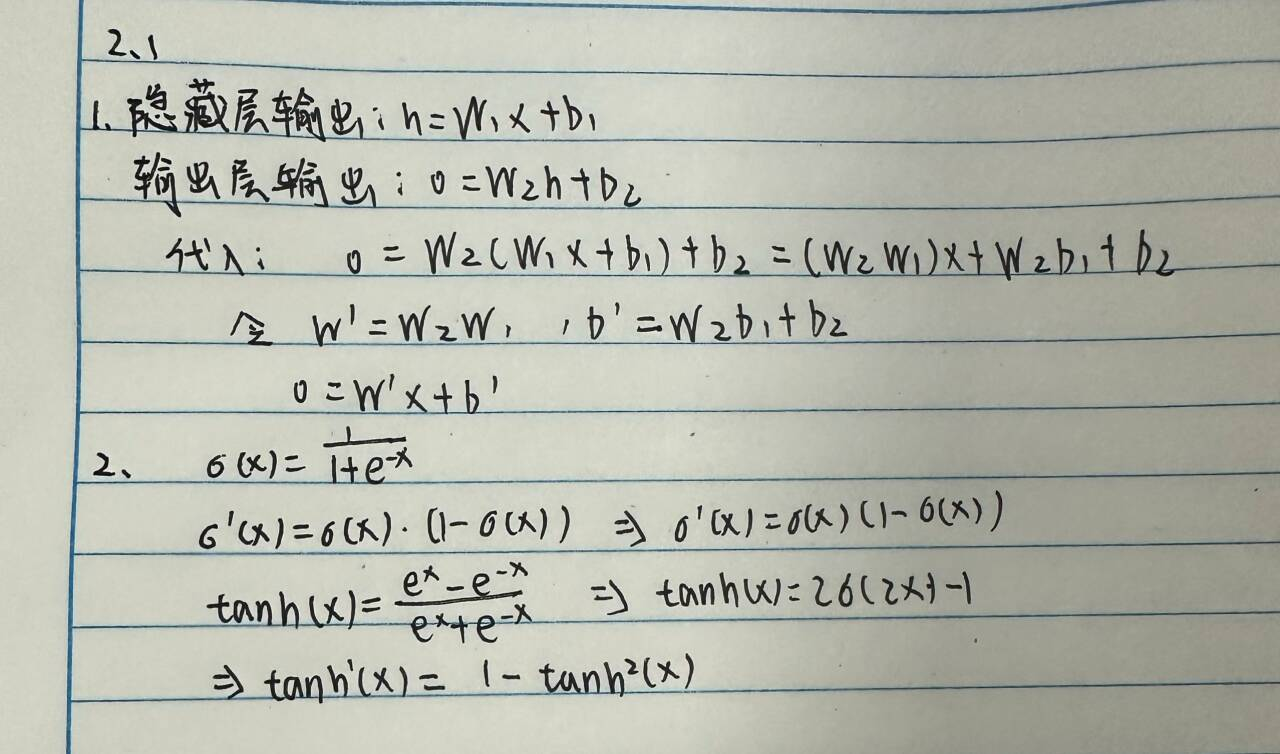 2、1
1. 隐藏层输出: h=W₁x+b₁
输出层输出: o=W₂h+b₂
代入: o=W₂(W₁x+b₁)+b₂=(W₂W₁)x+W₂b₁+b₂
令 W'=W₂W₁ , b'=W₂b₁+b₂
o=W'x+b'
2、 σ(x)=1/(1+e⁻ˣ)
σ'(x)=σ(x)·(1-σ(x)) ⇒ σ'(x)=σ(x)(1-σ(x))
tanh(x)=(eˣ-e⁻ˣ)/(eˣ+e⁻ˣ) ⇒ tanh(x)=2σ(2x)-1
⇒ tanh'(x)= 1-tanh²(x)